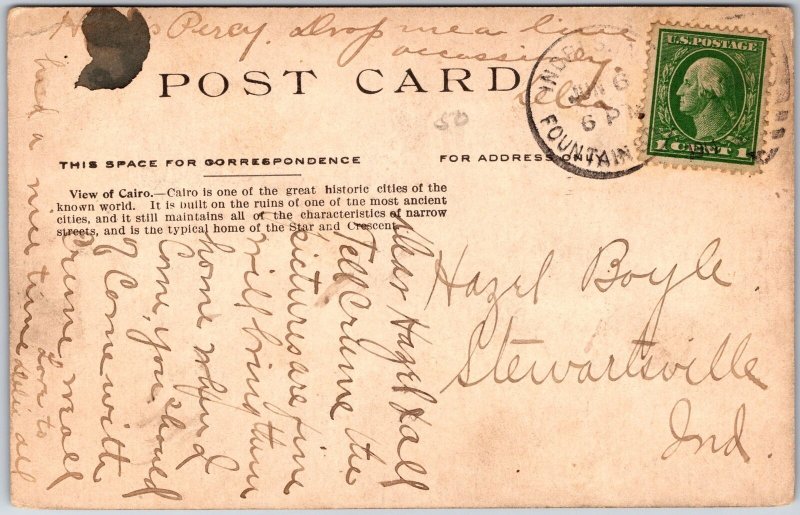 Percy. Drop me a line
POST CARD
U.S. POSTAGE
1 CENT 1
JUN 6
6 PM
FOUNTAIN
THIS SPACE FOR CORRESPONDENCE
FOR ADDRESS ONLY
View of Cairo.—Cairo is one of the great historic cities of the
known world. It is built on the ruins of one of the most ancient
cities, and it still maintains all of the characteristics of narrow
streets, and is the typical home of the Star and Crescent.
Dear Hazel & all
Tell Crume the
pictures are fine
will bring them
home when I
Come, you should
of Come with
Crume, we all
had a nice time
Love to
all
Hazel Boyle.
Stewartsville
Ind.
50